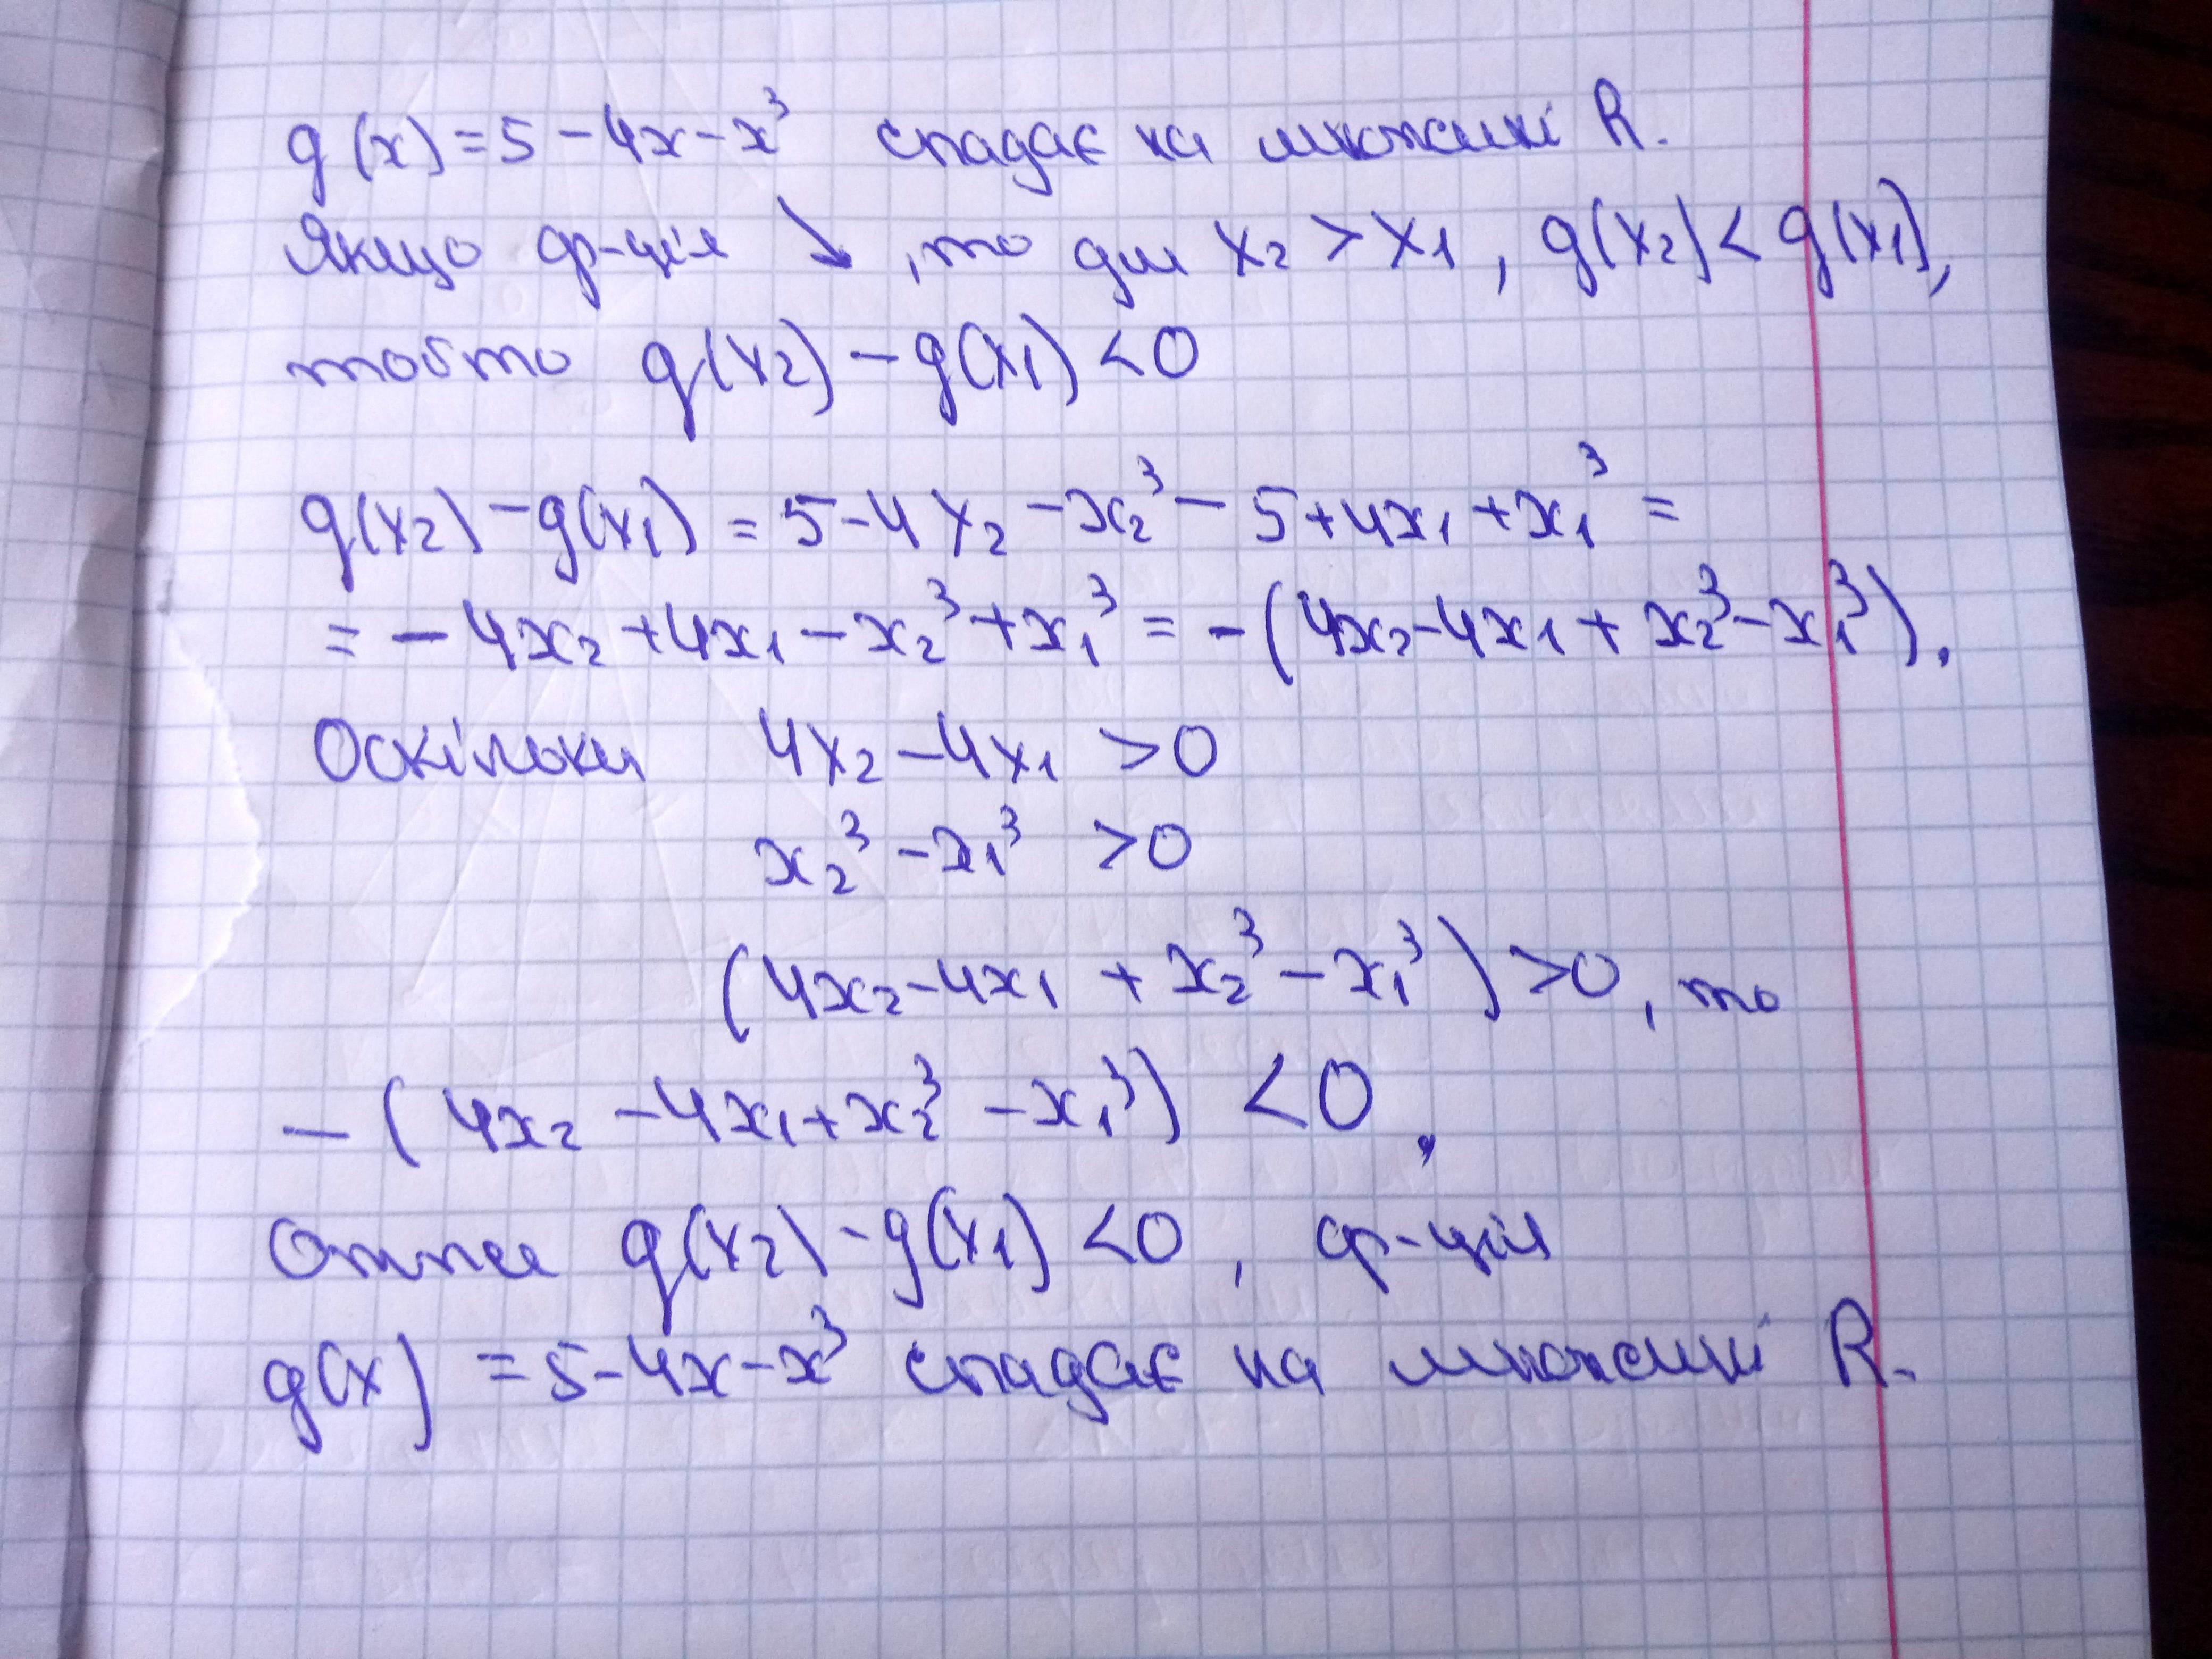 g(x) = 5 - 4x - x³ спадає на множині R.
Якщо ф-ція ↘, то для x₂ > x₁, g(x₂) < g(x₁),
тобто g(x₂) - g(x₁) < 0
g(x₂) - g(x₁) = 5 - 4x₂ - x₂³ - 5 + 4x₁ + x₁³ =
= - 4x₂ + 4x₁ - x₂³ + x₁³ = - (4x₂ - 4x₁ + x₂³ - x₁³).
Оскільки 4x₂ - 4x₁ > 0
x₂³ - x₁³ > 0
(4x₂ - 4x₁ + x₂³ - x₁³) > 0, то
- (4x₂ - 4x₁ + x₂³ - x₁³) < 0.
Отже g(x₂) - g(x₁) < 0, ф-ція
g(x) = 5 - 4x - x³ спадає на множині R.